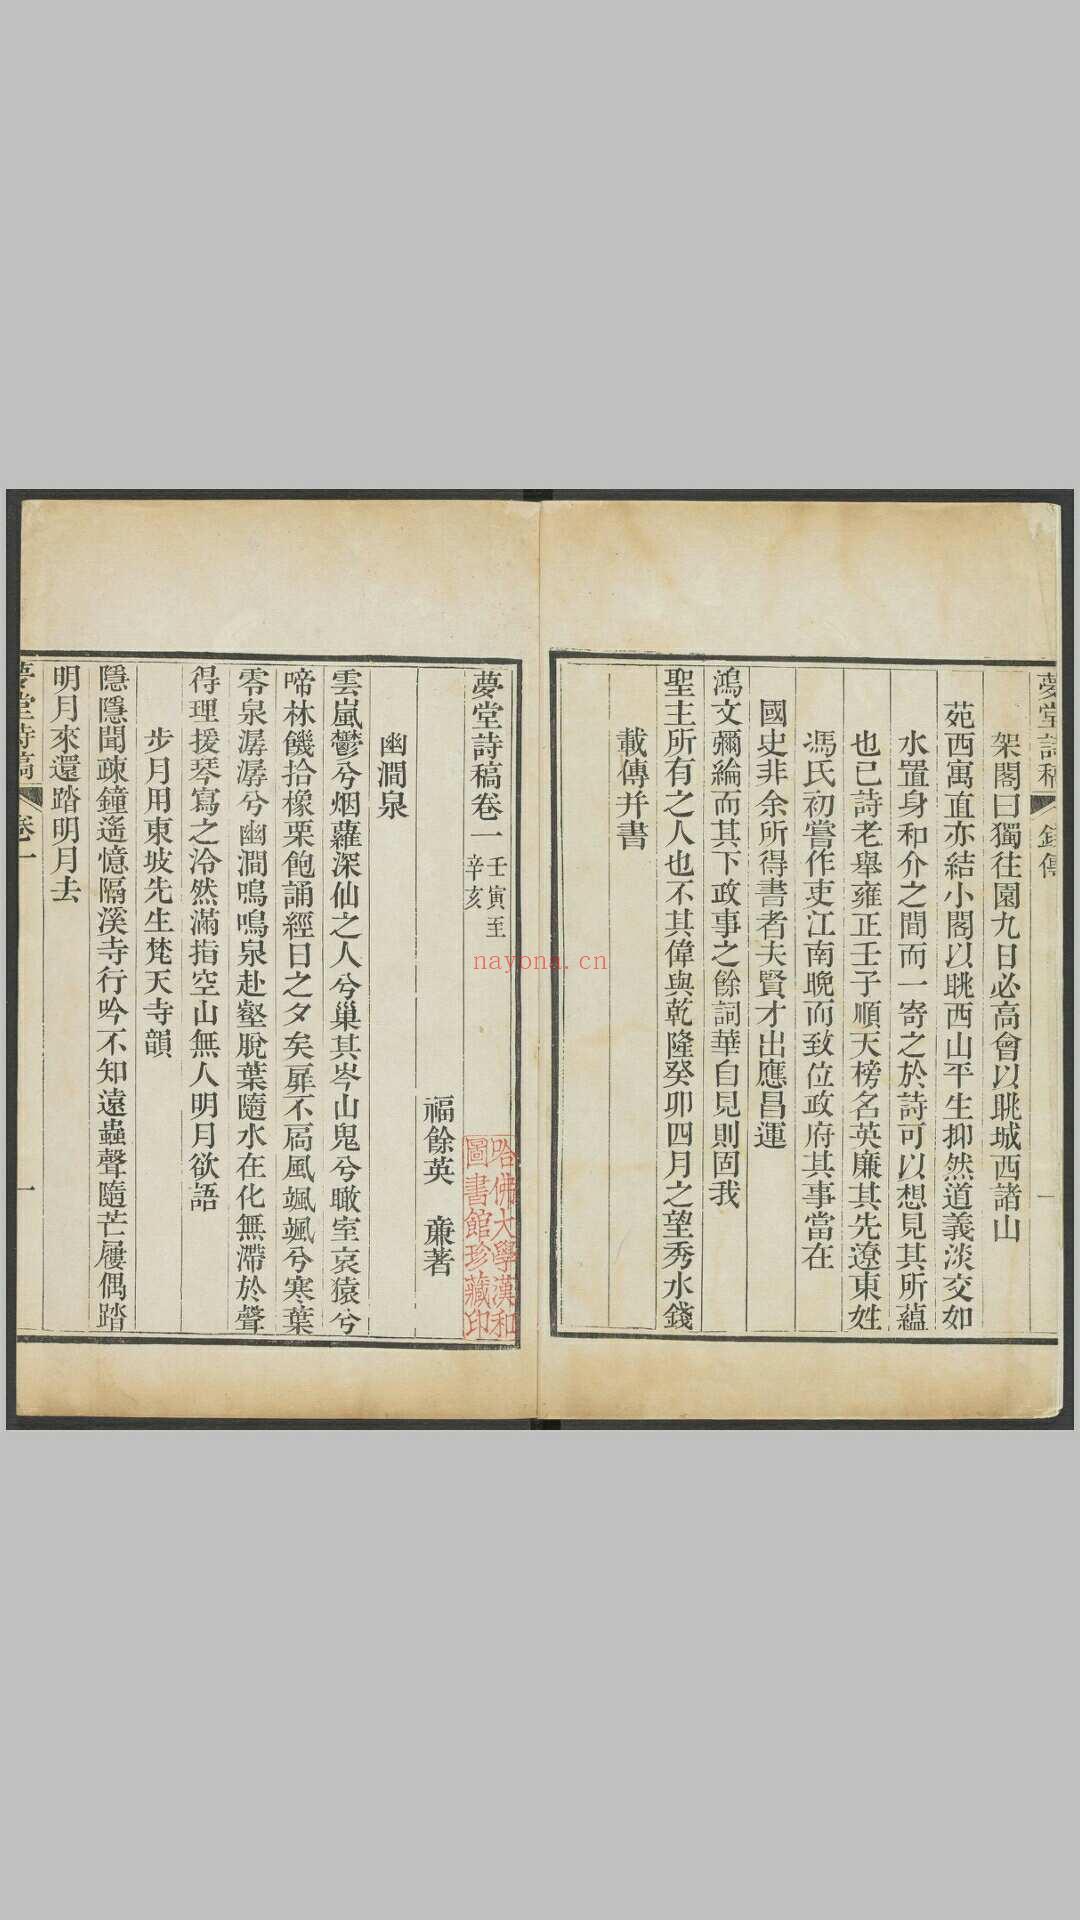 夢堂詩稿
錢傳
一
架閣曰獨往園九日必高會以眺城西諸山
苑西寓直亦結小閣以眺西山平生抑然道義淡交如
水置身和介之間而一寄之於詩可以想見其所蘊
也已詩老舉雍正壬子順天榜名英廉其先遼東姓
馮氏初嘗作吏江南晚而致位政府其事當在
國史非余所得書者夫賢才出應昌運
鴻文彌綸而其下政事之餘詞華自見則固我
聖主所有之人也不其偉與乾隆癸卯四月之望秀水錢
載傳并書
夢堂詩稿卷一 壬寅至
辛亥
福餘英 廉著
幽澗泉
雲嵐鬱兮烟蘿深仙之人兮巢其岑山鬼兮瞰室哀猿兮
啼林饑拾橡栗飽誦經日之夕矣扉不扃風颯颯兮寒葉
零泉潺潺兮幽澗鳴鳴泉赴壑脫葉隨水在化無滯於聲
得理援琴寫之泠然滿指空山無人明月欲語
步月用東坡先生梵天寺韻
隱隱聞疎鐘遙憶隔溪寺行吟不知遠蟲聲隨芒屨偶踏
明月來還踏明月去
夢堂詩稿
卷一
一
哈佛大學漢和
圖書館珍藏印
nayona.cn